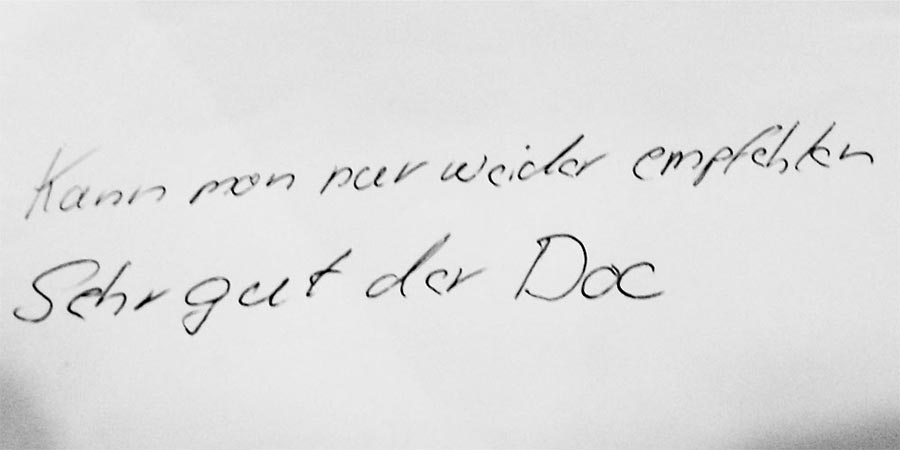 Kann man nur weider empfehlen
Sehr gut der Doc